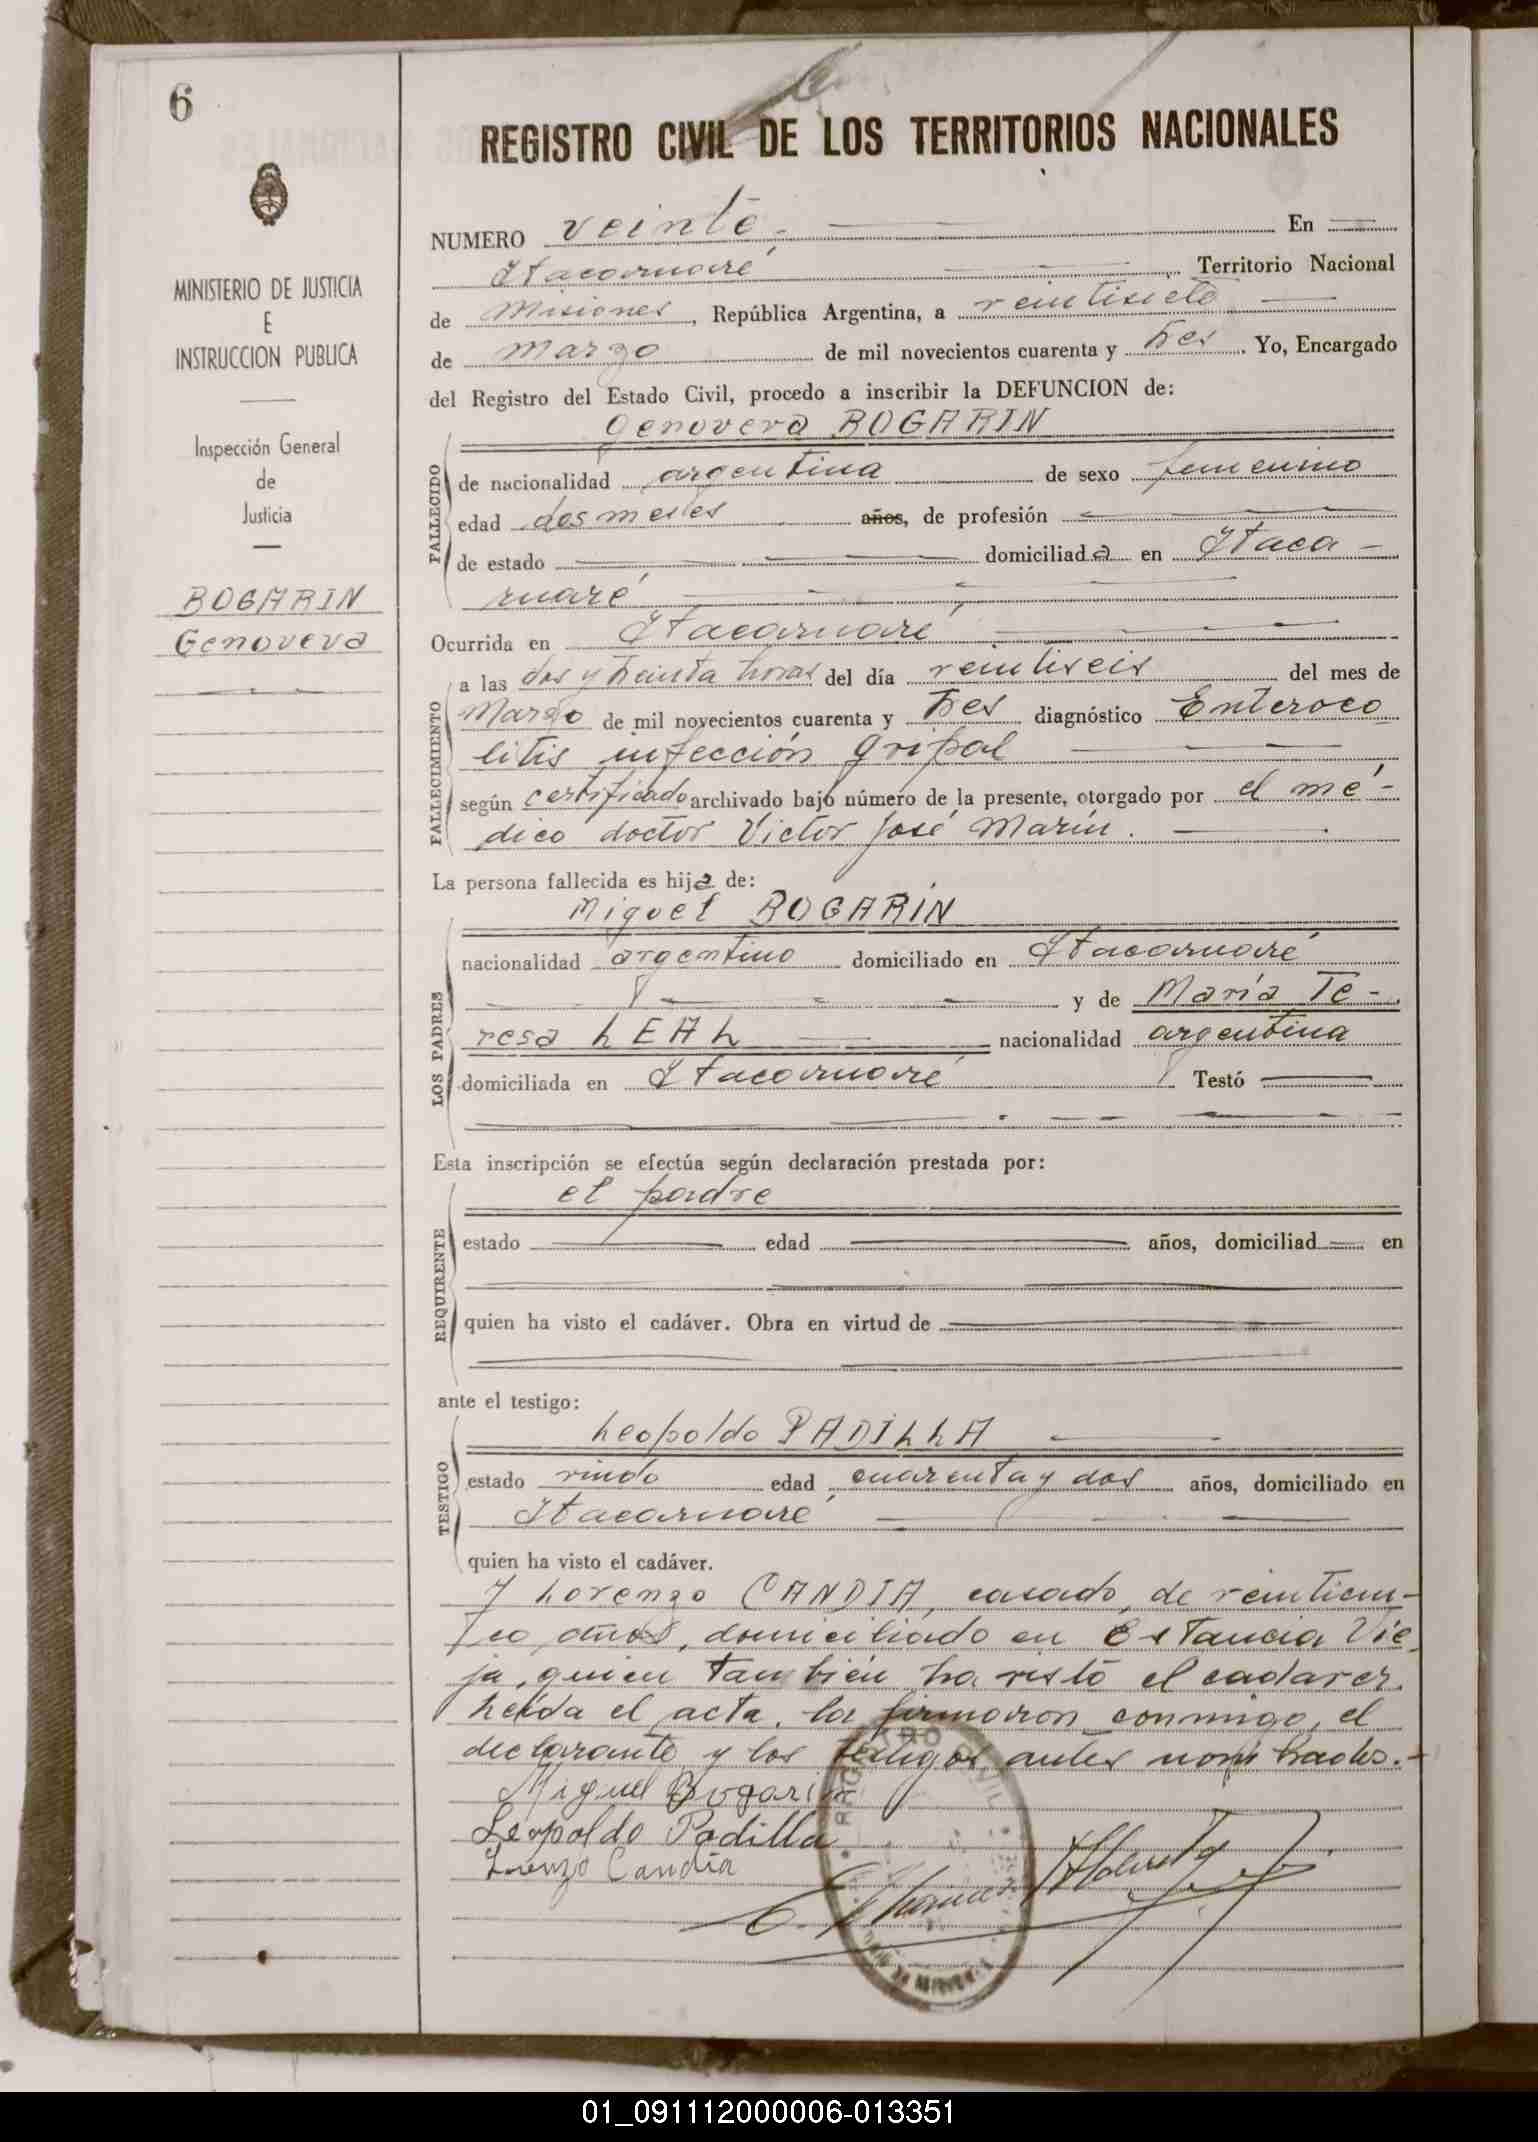 6
MINISTERIO DE JUSTICIA
E
INSTRUCCION PUBLICA
Inspección General
de
Justicia
BOGARIN
Genoveva
REGISTRO CIVIL DE LOS TERRITORIOS NACIONALES
NUMERO veinte. En
Itacaruaré Territorio Nacional
de Misiones, República Argentina, a veintisiete
de Marzo de mil novecientos cuarenta y tres. Yo, Encargado
del Registro del Estado Civil, procedo a inscribir la DEFUNCION de:
Genoveva BOGARIN
FALLECIDO
de nacionalidad argentina de sexo femenino
edad dos meses años, de profesión
de estado domiciliada en Itaca-
ruaré
Ocurrida en Itacaruaré
FALLECIMIENTO
a las dos y treinta horas del día veintiseis del mes de
Marzo de mil novecientos cuarenta y tres diagnóstico Enteroco
litis infección gripal
según certificado archivado bajo número de la presente, otorgado por el mé-
dico doctor Victor José Marín.
La persona fallecida es hija de:
Miguel BOGARIN
LOS PADRES
nacionalidad argentino domiciliado en Itacaruaré
y de María Te-
resa LEAL nacionalidad argentina
domiciliada en Itacaruaré Testó
Esta inscripción se efectúa según declaración prestada por:
el padre
REQUIRENTE
estado edad años, domiciliad en
quien ha visto el cadáver. Obra en virtud de
ante el testigo:
Leopoldo PADILLA
TESTIGO
estado viudo edad cuarenta y dos años, domiciliado en
Itacaruaré
quien ha visto el cadáver.
Y Lorenzo CANDIA, casado, de veinticin-
co años, domiciliado en Estancia Vie
ja, quien también ha visto el cadaver.
Leída el acta, la firmaron conmigo, el
declarante y los testigos antes nombrados.-
Miguel Bogarin
Leopoldo Padilla
Lorenzo Candia
REGISTRO CIVIL
01_091112000006-013351